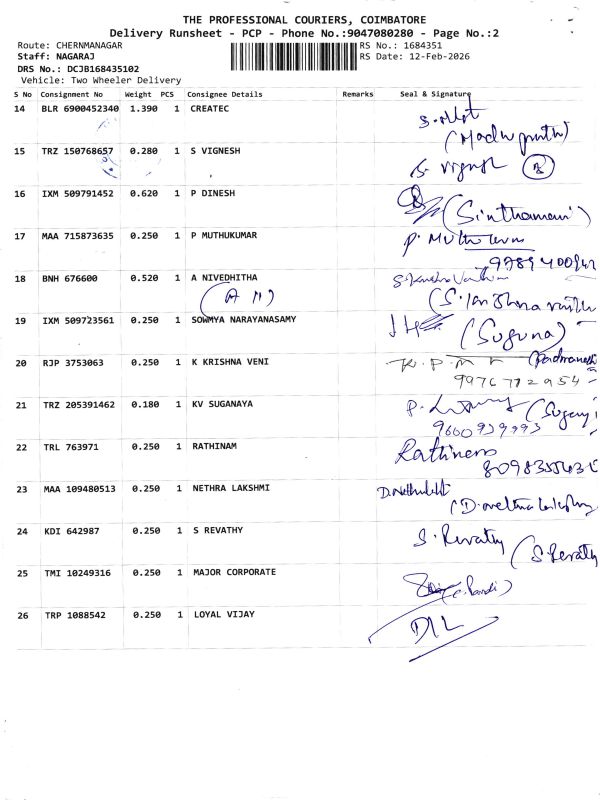 THE PROFESSIONAL COURIERS, COIMBATORE
Delivery Runsheet - PCP - Phone No.:9047080280 - Page No.:2
Route: CHERNMANAGAR
RS No.: 1684351
Staff: NAGARAJ
RS Date: 12-Feb-2026
DRS No.: DCJB168435102
Vehicle: Two Wheeler Delivery
S No Consignment No Weight PCS Consignee Details Remarks Seal & Signature
14 BLR 6900452340 1.390 1 CREATEC
15 TRZ 150768657 0.280 1 S VIGNESH S. Vignesh
16 IXM 509791452 0.620 1 P DINESH (Sinthamani)
17 MAA 715873635 0.250 1 P MUTHUKUMAR
18 BNH 676600 0.520 1 A NIVEDHITHA
19 IXM 509723561 0.250 1 SOWMYA NARAYANASAMY (Suguna)
20 RJP 3753063 0.250 1 K KRISHNA VENI
9976772954
21 TRZ 205391462 0.180 1 KV SUGANYA
22 TRL 763971 0.250 1 RATHINAM
23 MAA 109480513 0.250 1 NETHRA LAKSHMI
24 KDI 642987 0.250 1 S REVATHY S. Revathy (S. Revathy
25 TMI 10249316 0.250 1 MAJOR CORPORATE
26 TRP 1088542 0.250 1 LOYAL VIJAY D/L